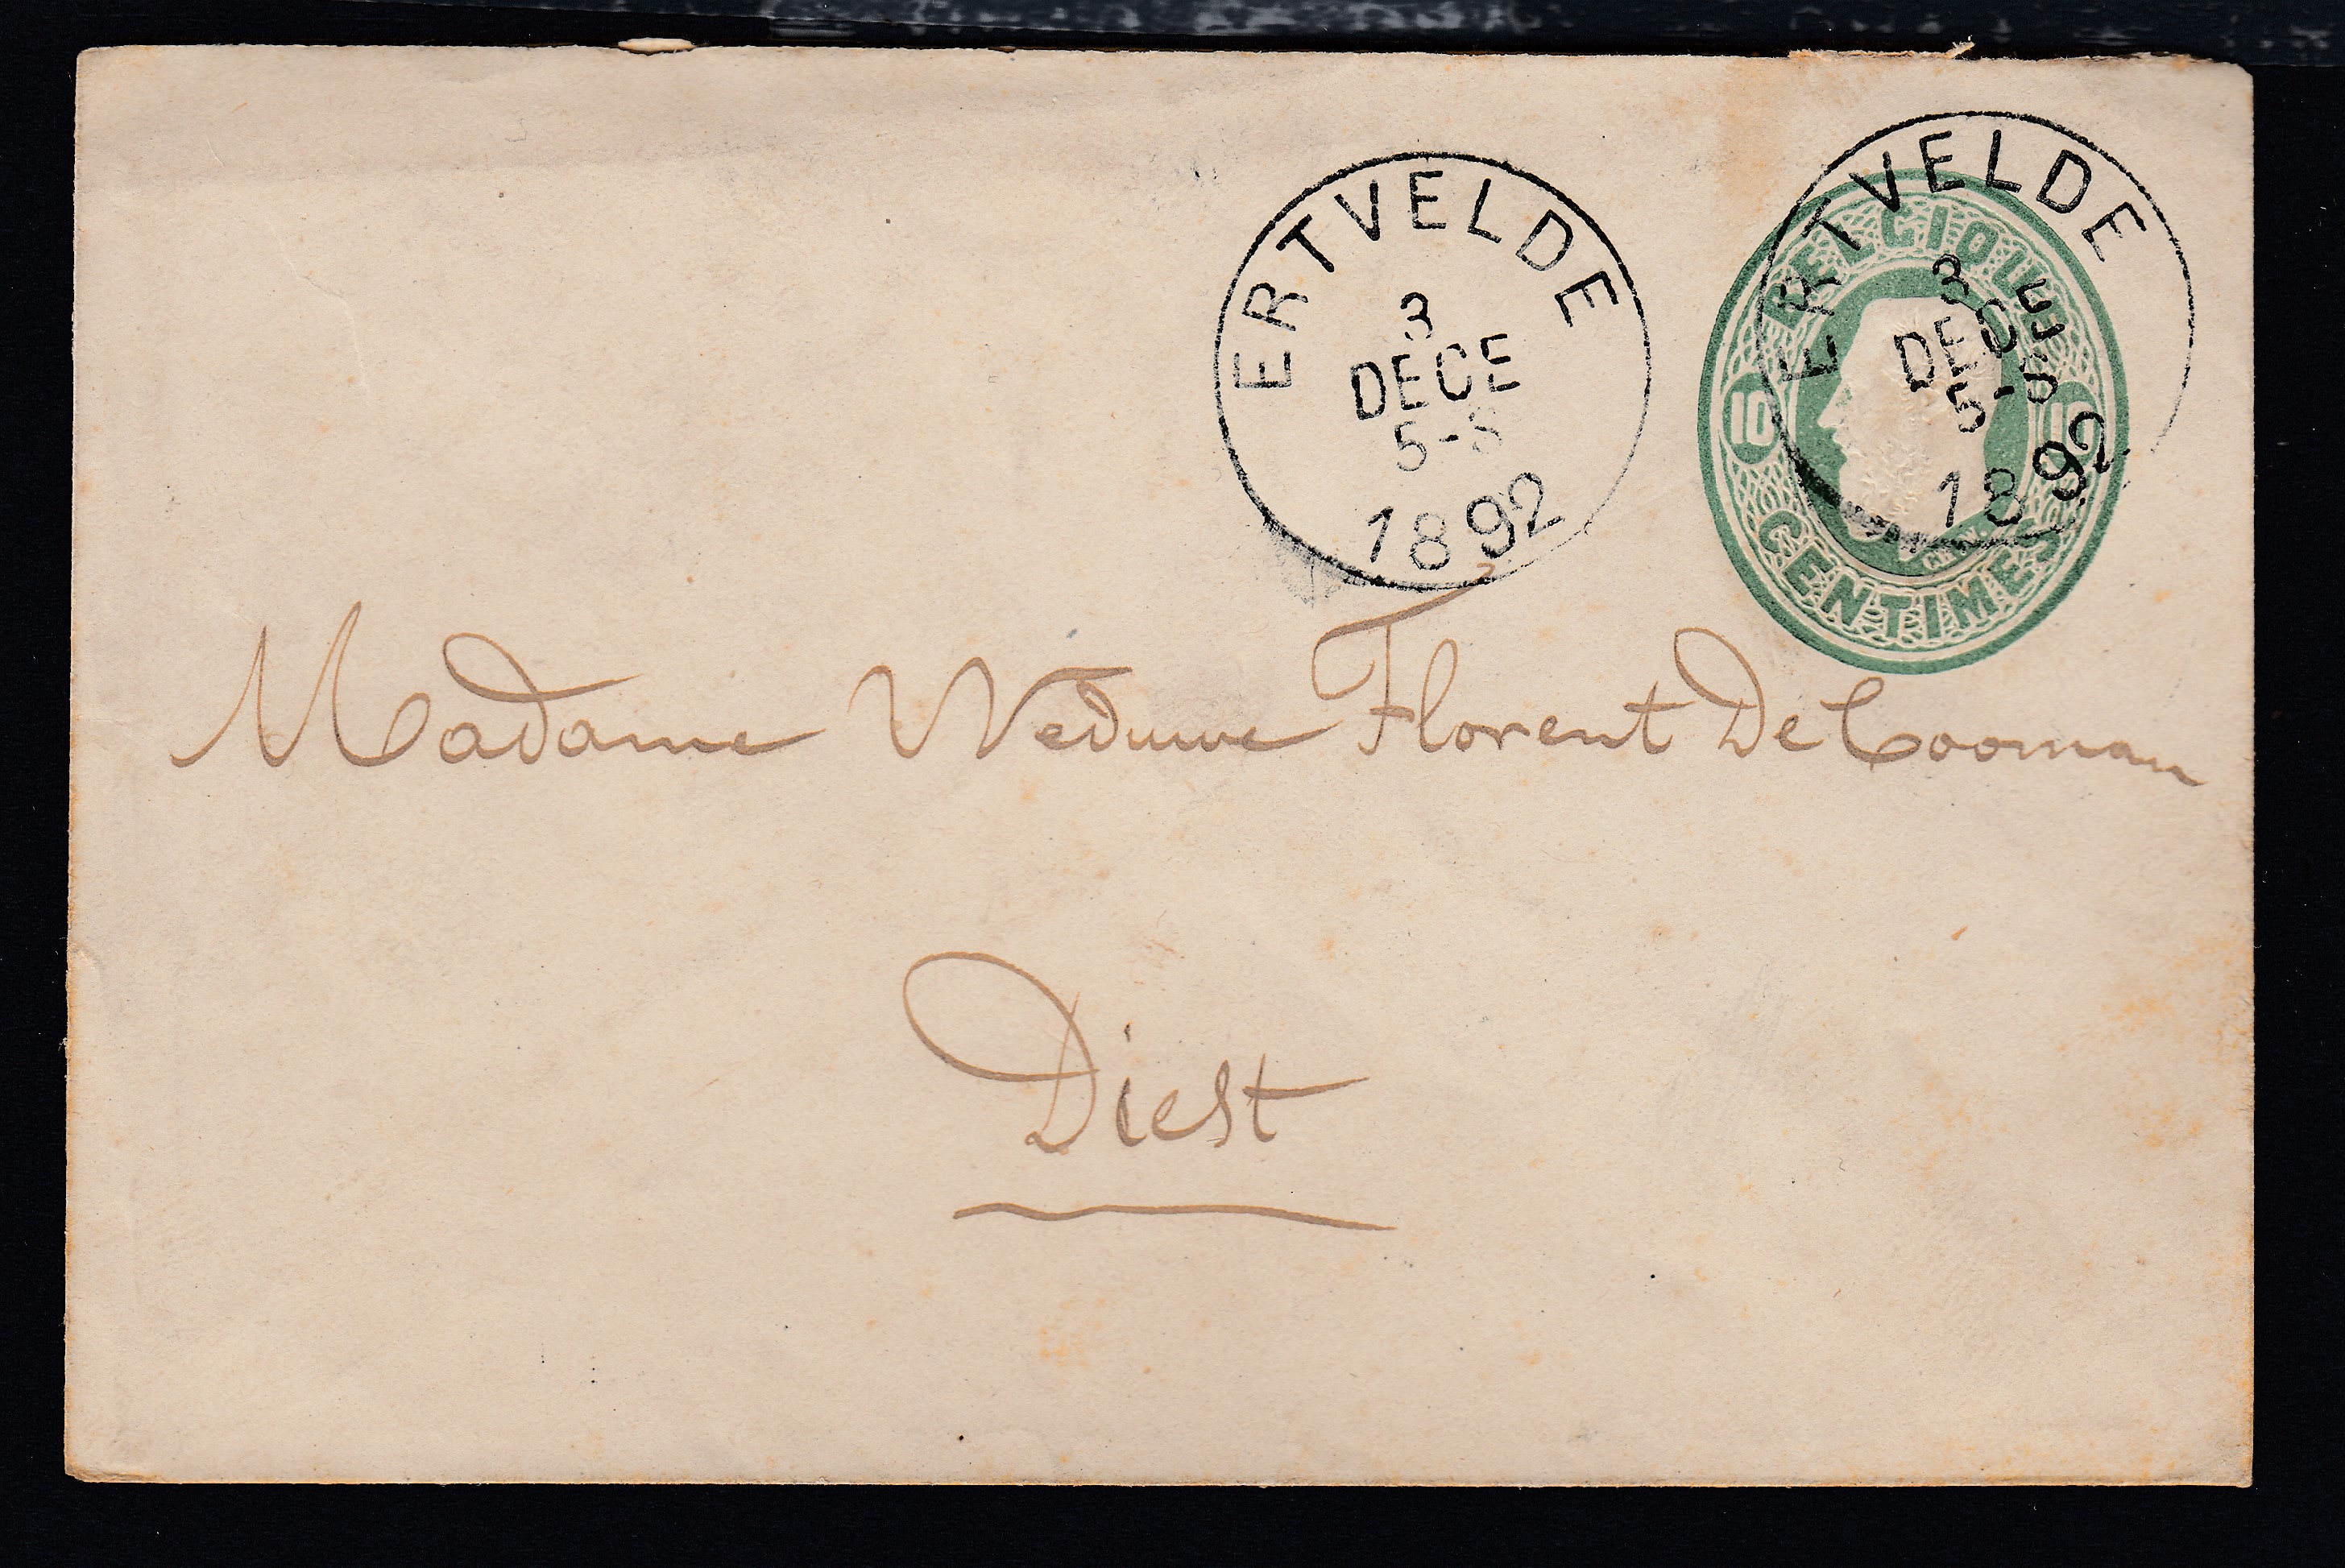 ERTVELDE
3
DECE
5-8
1892
ERTVELDE
3
DECE
5-8
1892
BELGIQUE
10 10
CENTIMES
Madame Weduwe Florent De Cooman
Diest